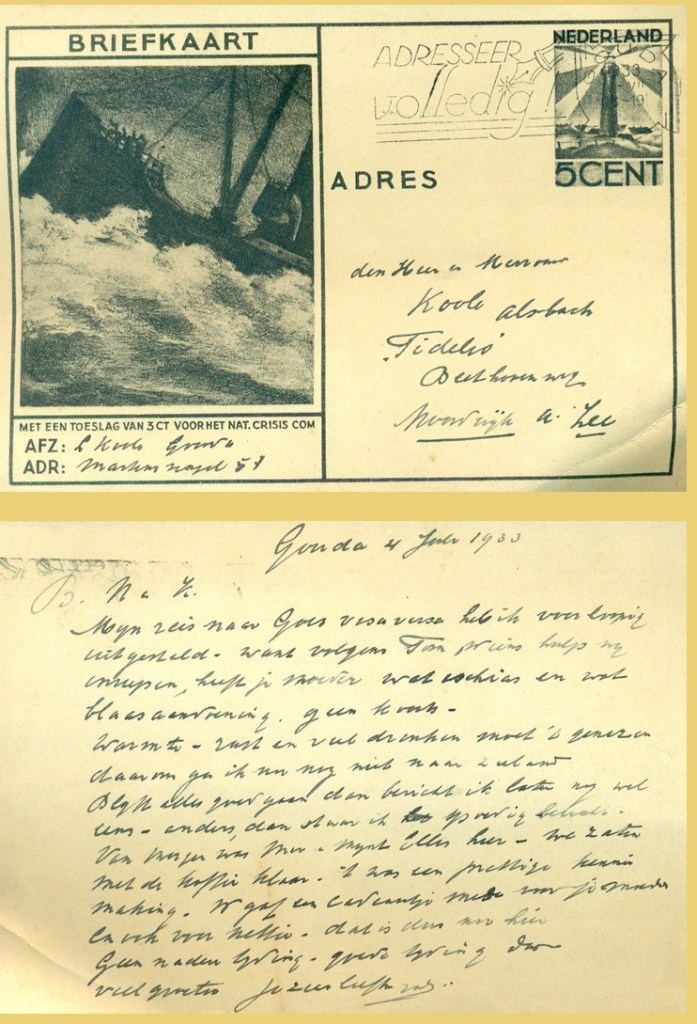 BRIEFKAART
NEDERLAND
ADRESSEER
volledig!
5 CENT
ADRES
den Heer en Mevrouw
Koole Alsbach
"Fidelio"
Beethovenweg
Noordwijk a. Zee
MET EEN TOESLAG VAN 3 CT VOOR HET NAT. CRISIS COM
AFZ: L Koole Gouda
ADR: 57
Gouda 4 Juli 1933
B. N e K.
Myn reis naar Goes visa versa heb ik voorloopig
uitgesteld - want volgens Tom wiens hulp wy
inriepen, heeft je moeder wat ischias en wat
blaasaandoening. geen koorts -
Warmte - rust en veel drinken moet 't genezen
daarom ga ik nu nog niet naar Zeeland
Blyft alles goed gaan dan bericht ik later nog wel
eens - anders, dan stuur ik spoedig bericht.
Van morgen was Mevr. Elles hier - we zaten
met de koffie klaar. 't was een prettige kennis
making. Zy gaf een cadeautje mede voor je moeder
en ook voor Nettie. dat is dus nu hier
Geen nader tyding - goede tyding dus
veel groeten je zeer liefh.